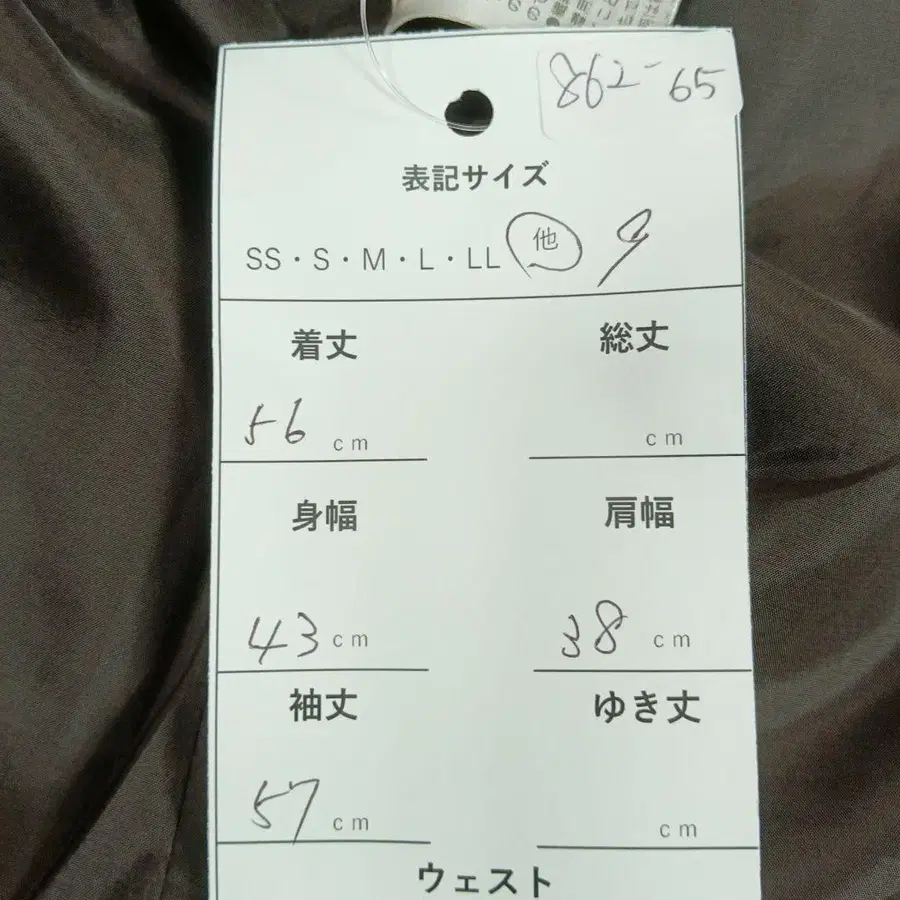 862-65
表記サイズ
SS・S・M・L・LL 他 9
着丈 総丈
56 cm cm
身幅 肩幅
43 cm 38 cm
袖丈 ゆき丈
57 cm cm
ウェスト